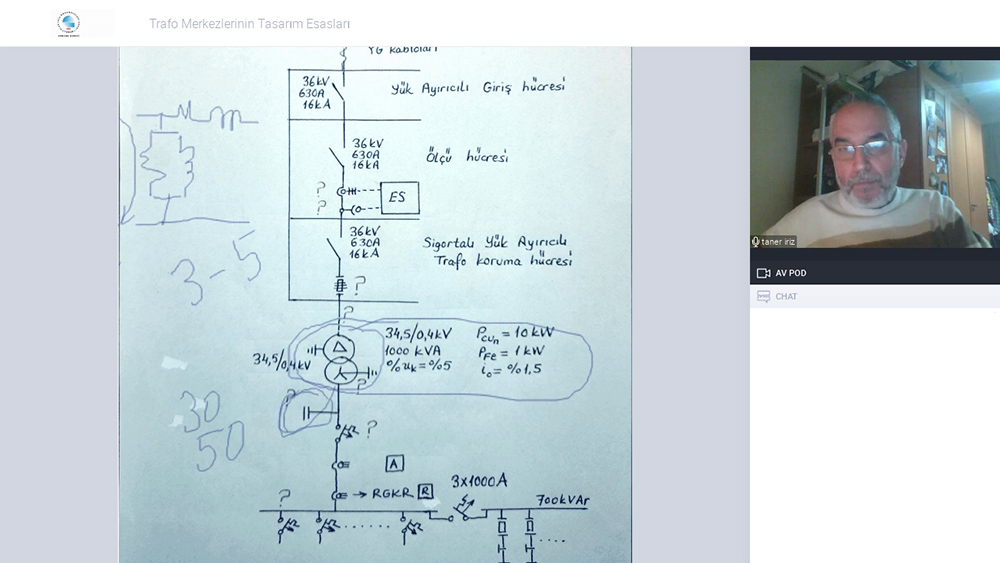 Trafo Merkezlerinin Tasarım Esasları
YG Kabloları
36kV
630A
16kA
Yük Ayırıcılı Giriş hücresi
36kV
630A
16kA
Ölçü hücresi
?
?
ES
36kV
630A
16kA
Sigortalı Yük Ayırıcılı
Trafo koruma hücresi
?
3-5
?
34,5/0,4kV
34,5/0,4kV
1000 kVA
%uk=%5
Pcun=10kW
PFe=1kW
io=%1.5
?
?
30
50
?
A
RGKR R
3x1000A
700kVAr
?
taner iriz
AV POD
CHAT